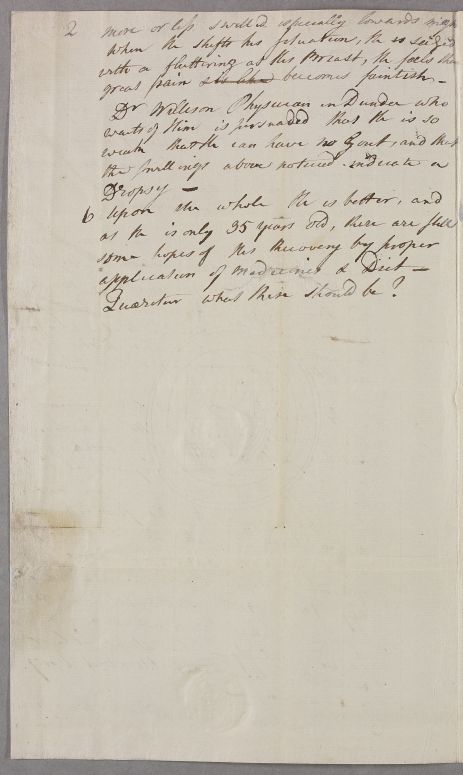 2 more or less swelled especially towards
When he shifts his situation, he is seized
with a fluttering at his Breast, he feels then
great pain & becomes faintish —
Dr Willison Physician in Dundee who
waits of Him is persuaded that he is so
weak that he can have no Gout, and that
the swellings above noticed indicate a
Dropsy —
6 Upon the whole he is better, and
as he is only 35 years old, there are still
some hopes of his Recovery by proper
application of Medicines & Diet —
Quæritur what these should be?